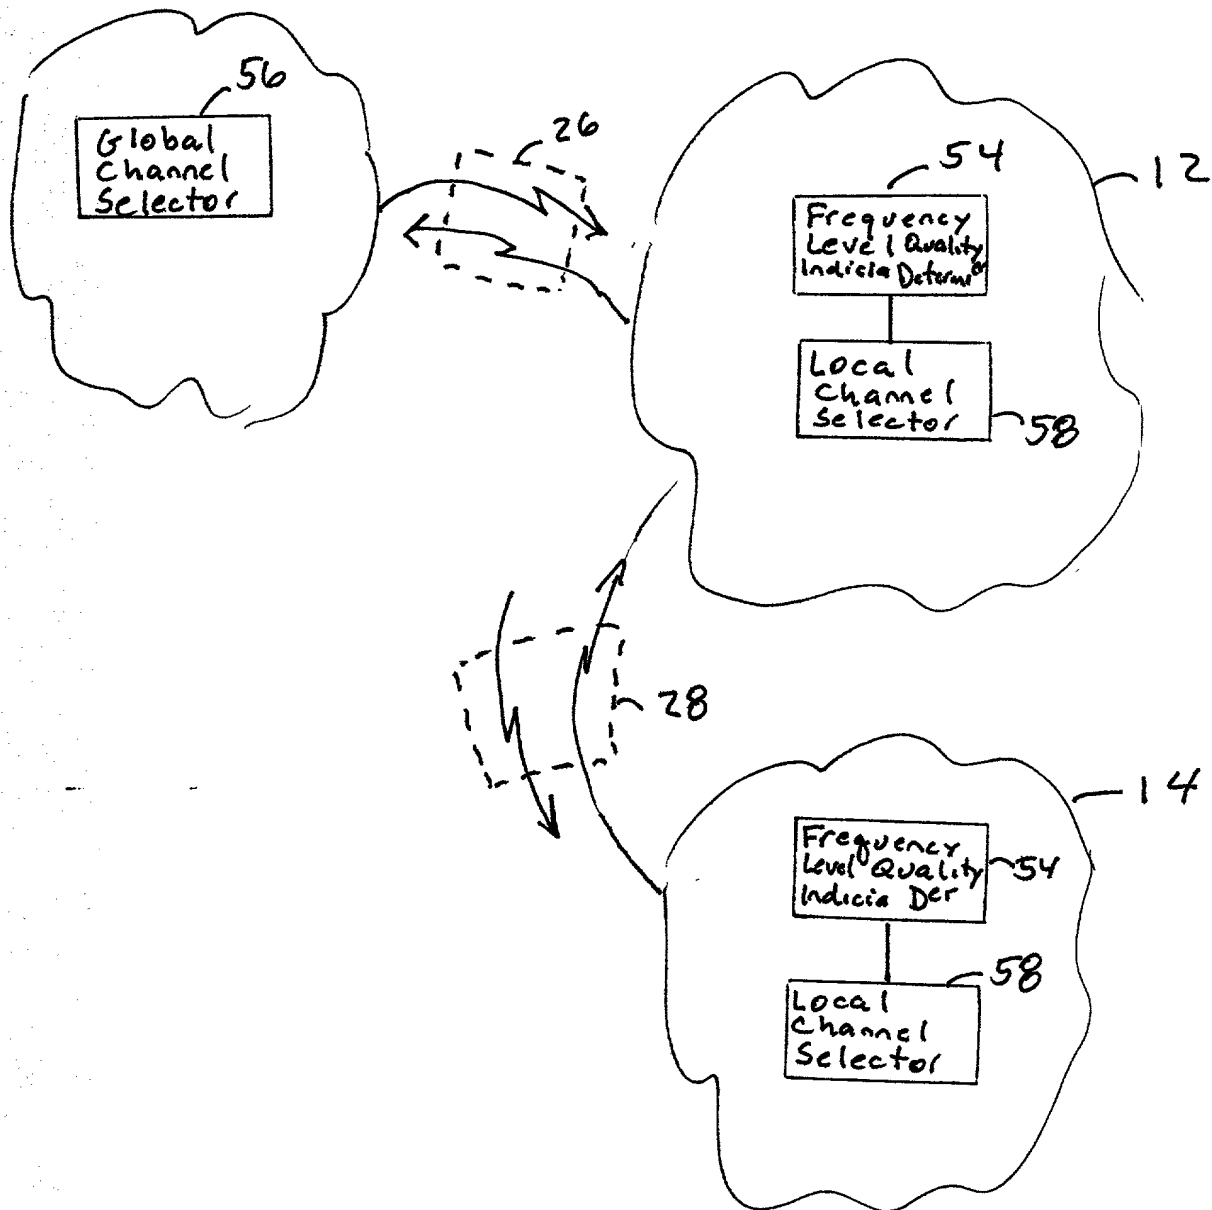 56
Global
Channel
Selector
26
54
12
Frequency
Level Quality
Indicia Determi er
Local
Channel
Selector
58
28
14
Frequency
Level Quality
Indicia Der
54
58
Local
Channel
Selector